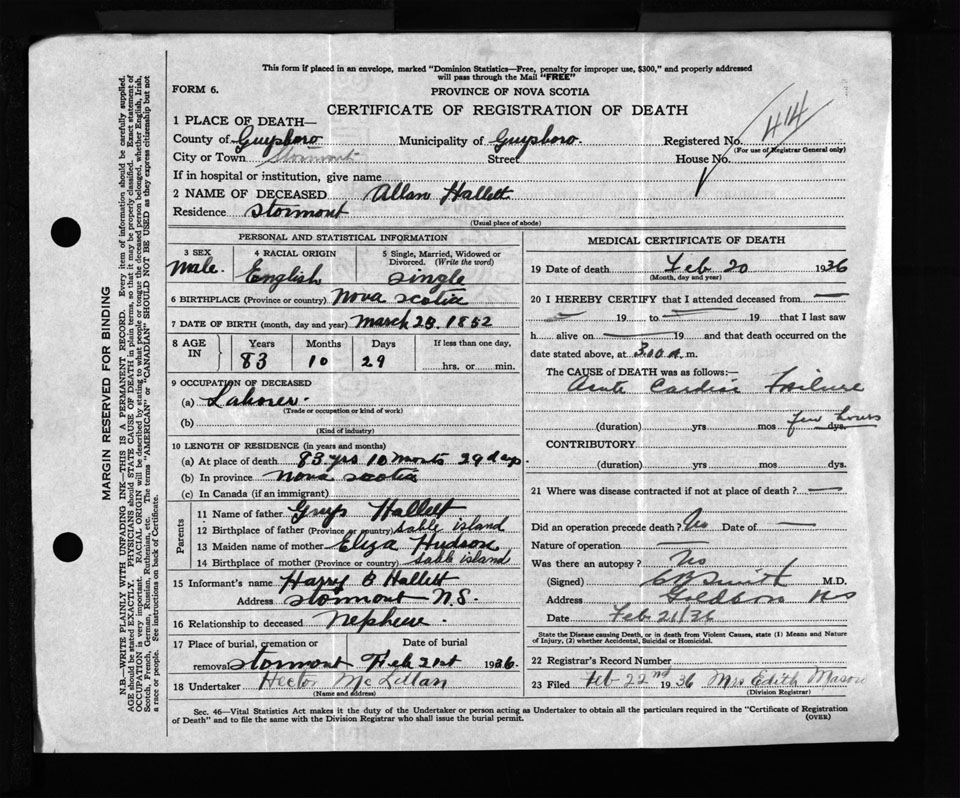 This form if placed in an envelope, marked "Dominion Statistics—Free, penalty for improper use, $300," and properly addressed
will pass through the Mail "FREE"
FORM 6.
PROVINCE OF NOVA SCOTIA
CERTIFICATE OF REGISTRATION OF DEATH
1 PLACE OF DEATH—
County of Guysboro Municipality of Guysboro. Registered No. 414
(For use of Registrar General only)
City or Town Stormont Street House No.
If in hospital or institution, give name
2 NAME OF DECEASED Allan Hallett
Residence Stormont
(Usual place of abode)
PERSONAL AND STATISTICAL INFORMATION
3 SEX Male. 4 RACIAL ORIGIN English 5 Single, Married, Widowed or Divorced. (Write the word) Single
6 BIRTHPLACE (Province or country) Nova Scotia
7 DATE OF BIRTH (month, day and year) March 1852
8 AGE IN Years Months Days If less than one day,
83 10 29 hrs. or min.
9 OCCUPATION OF DECEASED
(a) Laborer.
(Trade or occupation or kind of work)
(b)
(Kind of industry)
10 LENGTH OF RESIDENCE (in years and months)
(a) At place of death 83 yrs 10 monts 29 days
(b) In province Nova Scotia
(c) In Canada (if an immigrant)
Parents
11 Name of father Guys Hallett
12 Birthplace of father (Province or country) Sable island
13 Maiden name of mother Eliza Hudson
14 Birthplace of mother (Province or country) Sable island
15 Informant's name Harry B Hallett
Address Stormont N.S.
16 Relationship to deceased Nephew.
17 Place of burial, cremation or Date of burial
removal Stormont Feb 21st 1936
18 Undertaker Hector McLellan
(Name and address)
MEDICAL CERTIFICATE OF DEATH
19 Date of death Feb 20 1936
(Month, day and year)
20 I HEREBY CERTIFY that I attended deceased from —
— 19 to — 19 that I last saw
h alive on — 19 and that death occurred on the
date stated above, at 3.00 a. m.
The CAUSE OF DEATH was as follows:—
Acute Cardiac Failure
(duration) yrs mos few hours dys.
CONTRIBUTORY
(duration) yrs mos dys.
21 Where was disease contracted if not at place of death? —
Did an operation precede death? No Date of —
Nature of operation —
Was there an autopsy? No
(Signed) CB Smith M.D.
Address Goldboro NS
Date Feb 21/36
State the Disease causing Death, or in death from Violent Causes, state (1) Means and Nature
of Injury, (2) whether Accidental, Suicidal or Homicidal.
22 Registrar's Record Number
23 Filed Feb 22nd 1936 Mrs Edith Mason
(Division Registrar)
Sec. 46—Vital Statistics Act makes it the duty of the Undertaker or person acting as Undertaker to obtain all the particulars required in the "Certificate of Registration
of Death" and to file the same with the Division Registrar who shall issue the burial permit.
(OVER)
MARGIN RESERVED FOR BINDING
N.B.—WRITE PLAINLY WITH UNFADING INK—THIS IS A PERMANENT RECORD. Every item of information should be carefully supplied.
AGE should be stated EXACTLY. PHYSICIANS should STATE CAUSE OF DEATH in plain terms, so that it may be properly classified. Exact statement of
OCCUPATION is very important. RACIAL ORIGIN will be described by stating to what people or tongue the deceased person belonged, whether English, Irish,
Scotch, French, German, Russian, Ruthenian, etc. The terms "AMERICAN" or "CANADIAN" SHOULD NOT BE USED as they express citizenship but not
a race or people. See instructions on back of Certificate.